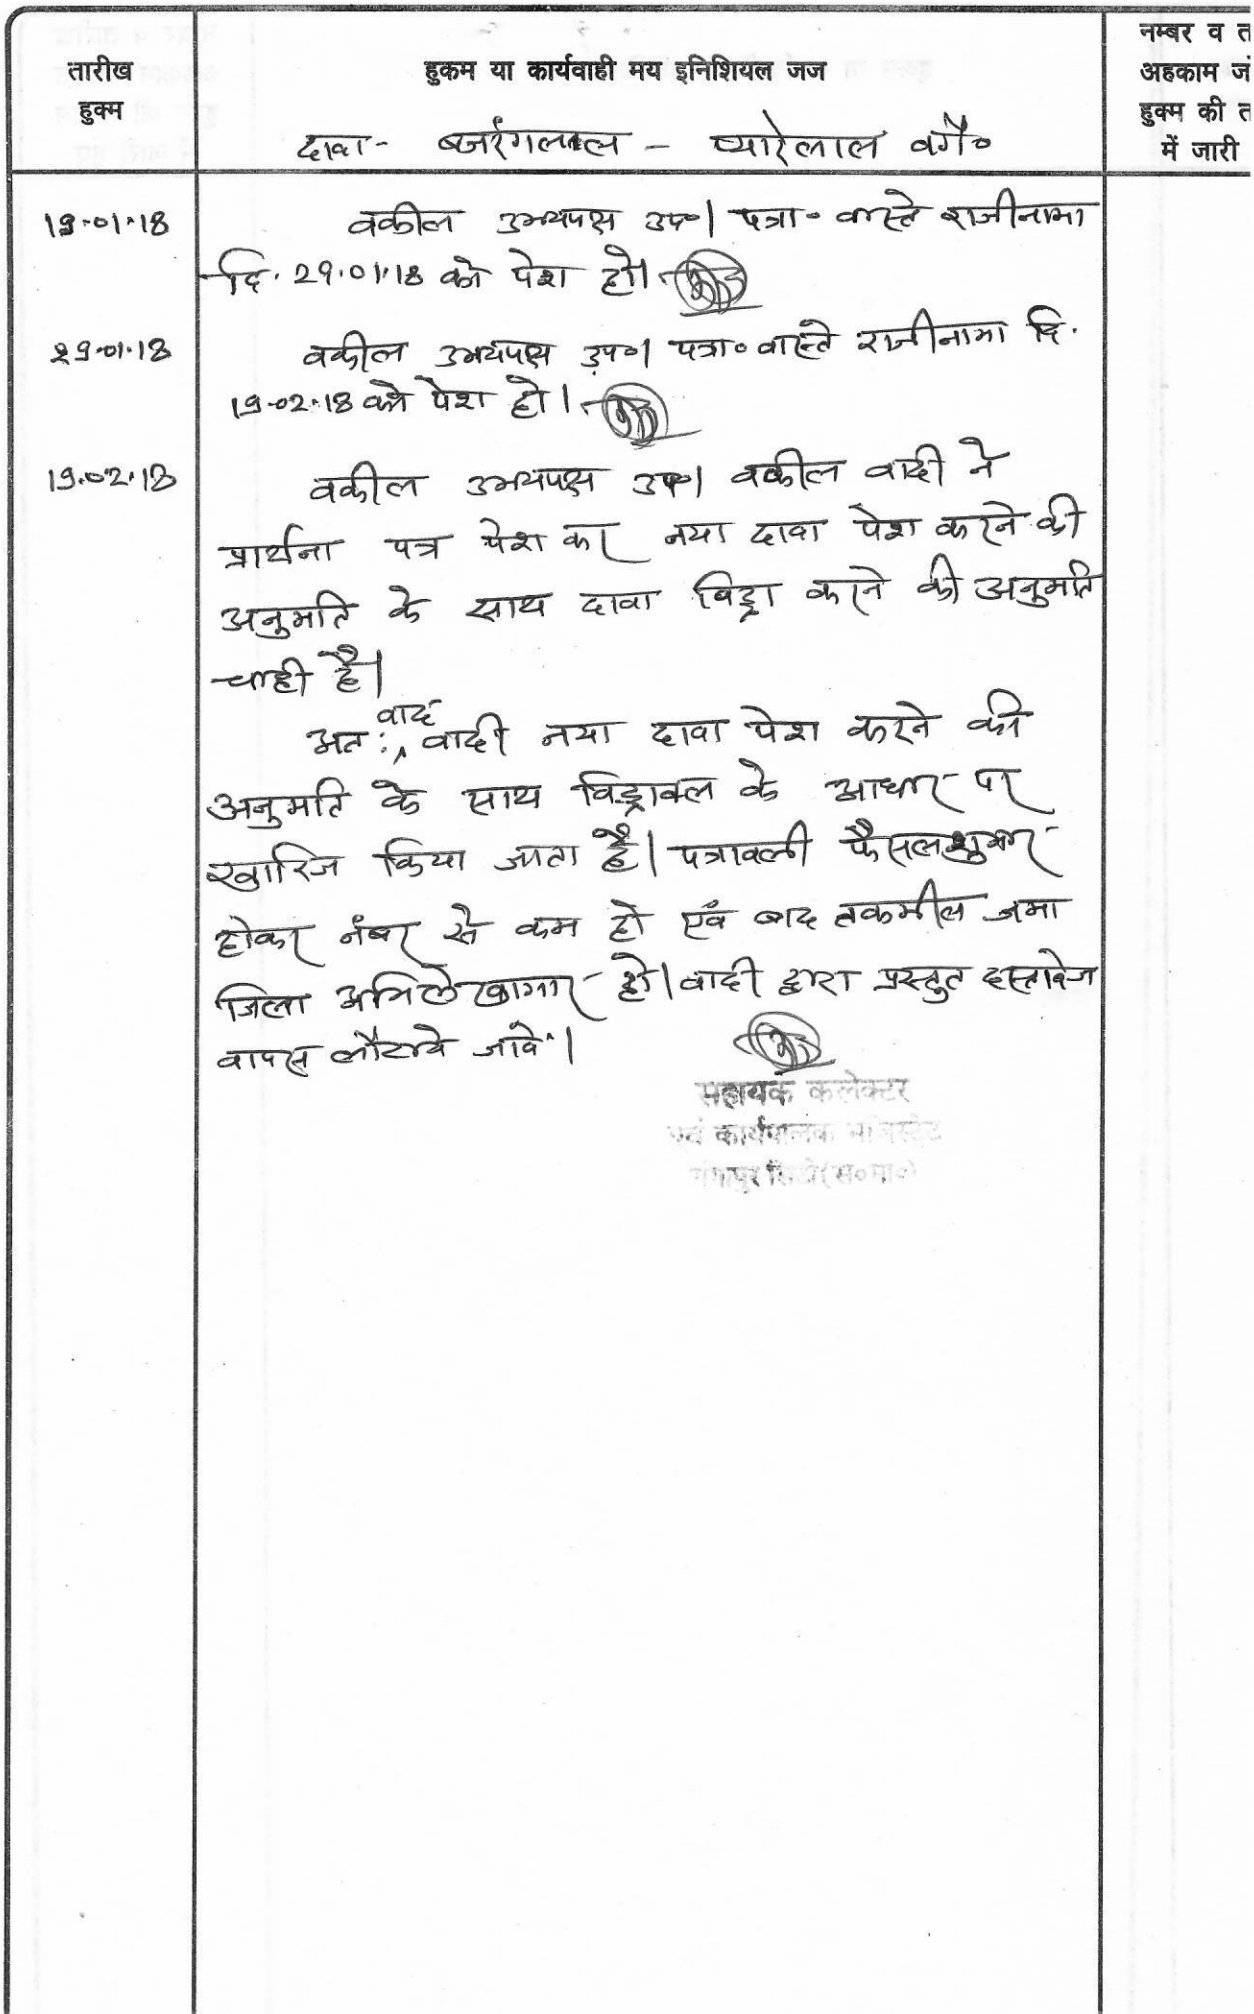 तारीख
हुक्म
हुकम या कार्यवाही मय इनिशियल जज
नम्बर व त
अहकाम जं
हुक्म की त
में जारी
दावा- बजरंगलाल - प्यारेलाल वगै०
19.01.18 वकील उभयपक्ष उप०। पत्रा० वास्ते राजीनामा
दि. 29.01.18 को पेश हो।
29.01.18 वकील उभयपक्ष उप०। पत्रा० वास्ते राजीनामा दि.
19.02.18 को पेश हो।
19.02.18 वकील उभयपक्ष उप०। वकील वादी ने
प्रार्थना पत्र पेश कर नया दावा पेश करने की
अनुमति के साथ दावा विड्रा करने की अनुमति
चाही है।
अत: वाद वादी नया दावा पेश करने की
अनुमति के साथ विड्रावल के आधार पर
खारिज किया जाता है। पत्रावली फैसलशुमार
होकर नंबर से कम हो एवं बाद तकमील जमा
जिला अभिलेखागार हो। वादी द्वारा प्रस्तुत दस्तावेज
वापस लौटाये जावें।
सहायक कलेक्टर
एवं कार्यपालक मजिस्ट्रेट
गंगापुर सिटी(स०मा०)